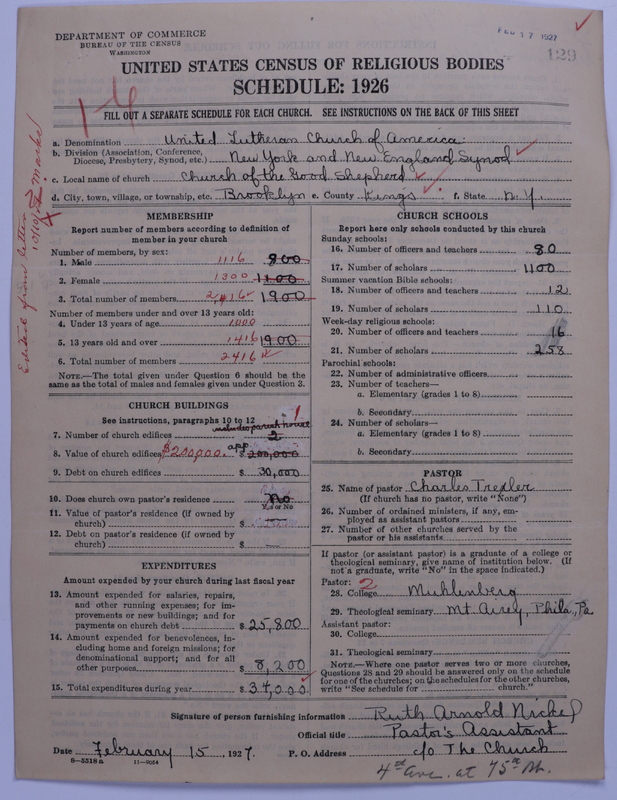 DEPARTMENT OF COMMERCE
BUREAU OF THE CENSUS
WASHINGTON
FEB 17 1927
129
UNITED STATES CENSUS OF RELIGIOUS BODIES
SCHEDULE: 1926
FILL OUT A SEPARATE SCHEDULE FOR EACH CHURCH. SEE INSTRUCTIONS ON THE BACK OF THIS SHEET
a. Denomination United Lutheran Church of America
b. Division (Association, Conference, Diocese, Presbytery, Synod, etc.) New York and New England Synod
c. Local name of church Church of the Good Shepherd
d. City, town, village, or township, etc. Brooklyn e. County Kings f. State N.Y.
MEMBERSHIP
Report number of members according to definition of
member in your church
Number of members, by sex:
1. Male 1116 800
2. Female 1300 1100
3. Total number of members 2416 1900
Number of members under and over 13 years old:
4. Under 13 years of age 1000
5. 13 years old and over 1416 1900
6. Total number of members 2416
NOTE.—The total given under Question 6 should be
same as the total of males and females given under Question 3.
CHURCH BUILDINGS
See instructions, paragraphs 10 to 12
includes parish house 1
7. Number of church edifices 2
8. Value of church edifices $200,000. app $ 200,000
9. Debt on church edifices $ 30,000
10. Does church own pastor's residence No
Yes or No
11. Value of pastor's residence (if owned by
church) $ —
12. Debt on pastor's residence (if owned by
church) $ —
EXPENDITURES
Amount expended by your church during last fiscal year
13. Amount expended for salaries, repairs,
and other running expenses; for im-
provements or new buildings; and for
payments on church debt $ 25,800
14. Amount expended for benevolences, in-
cluding home and foreign missions; for
denominational support; and for all
other purposes $ 8,200
15. Total expenditures during year $ 34,000
CHURCH SCHOOLS
Report here only schools conducted by this church
Sunday schools:
16. Number of officers and teachers 80
17. Number of scholars 1100
Summer vacation Bible schools:
18. Number of officers and teachers 12
19. Number of scholars 110
Week-day religious schools:
20. Number of officers and teachers 16
21. Number of scholars 258
Parochial schools:
22. Number of administrative officers
23. Number of teachers—
a. Elementary (grades 1 to 8)
b. Secondary
24. Number of scholars—
a. Elementary (grades 1 to 8)
b. Secondary
PASTOR
25. Name of pastor Charles Trexler
(If church has no pastor, write "None")
26. Number of ordained ministers, if any, em-
ployed as assistant pastors
27. Number of other churches served by the
pastor or his assistants
If pastor (or assistant pastor) is a graduate of a college or
theological seminary, give name of institution below. (If
not a graduate, write "No" in the space indicated.)
Pastor: 2
28. College Muhlenberg
29. Theological seminary Mt Airy, Phila, Pa
Assistant pastor:
30. College
31. Theological seminary
NOTE.—Where one pastor serves two or more churches,
Questions 28 and 29 should be answered only on the schedule
for one of the churches; on the schedules for the other churches,
write "See schedule for church."
Signature of person furnishing information Ruth Arnold Nickel
Official title Pastor's Assistant
Date February 15, 1927. P. O. Address c/o The Church
8-5318 a 11-9034
4th Ave. at 75th St.